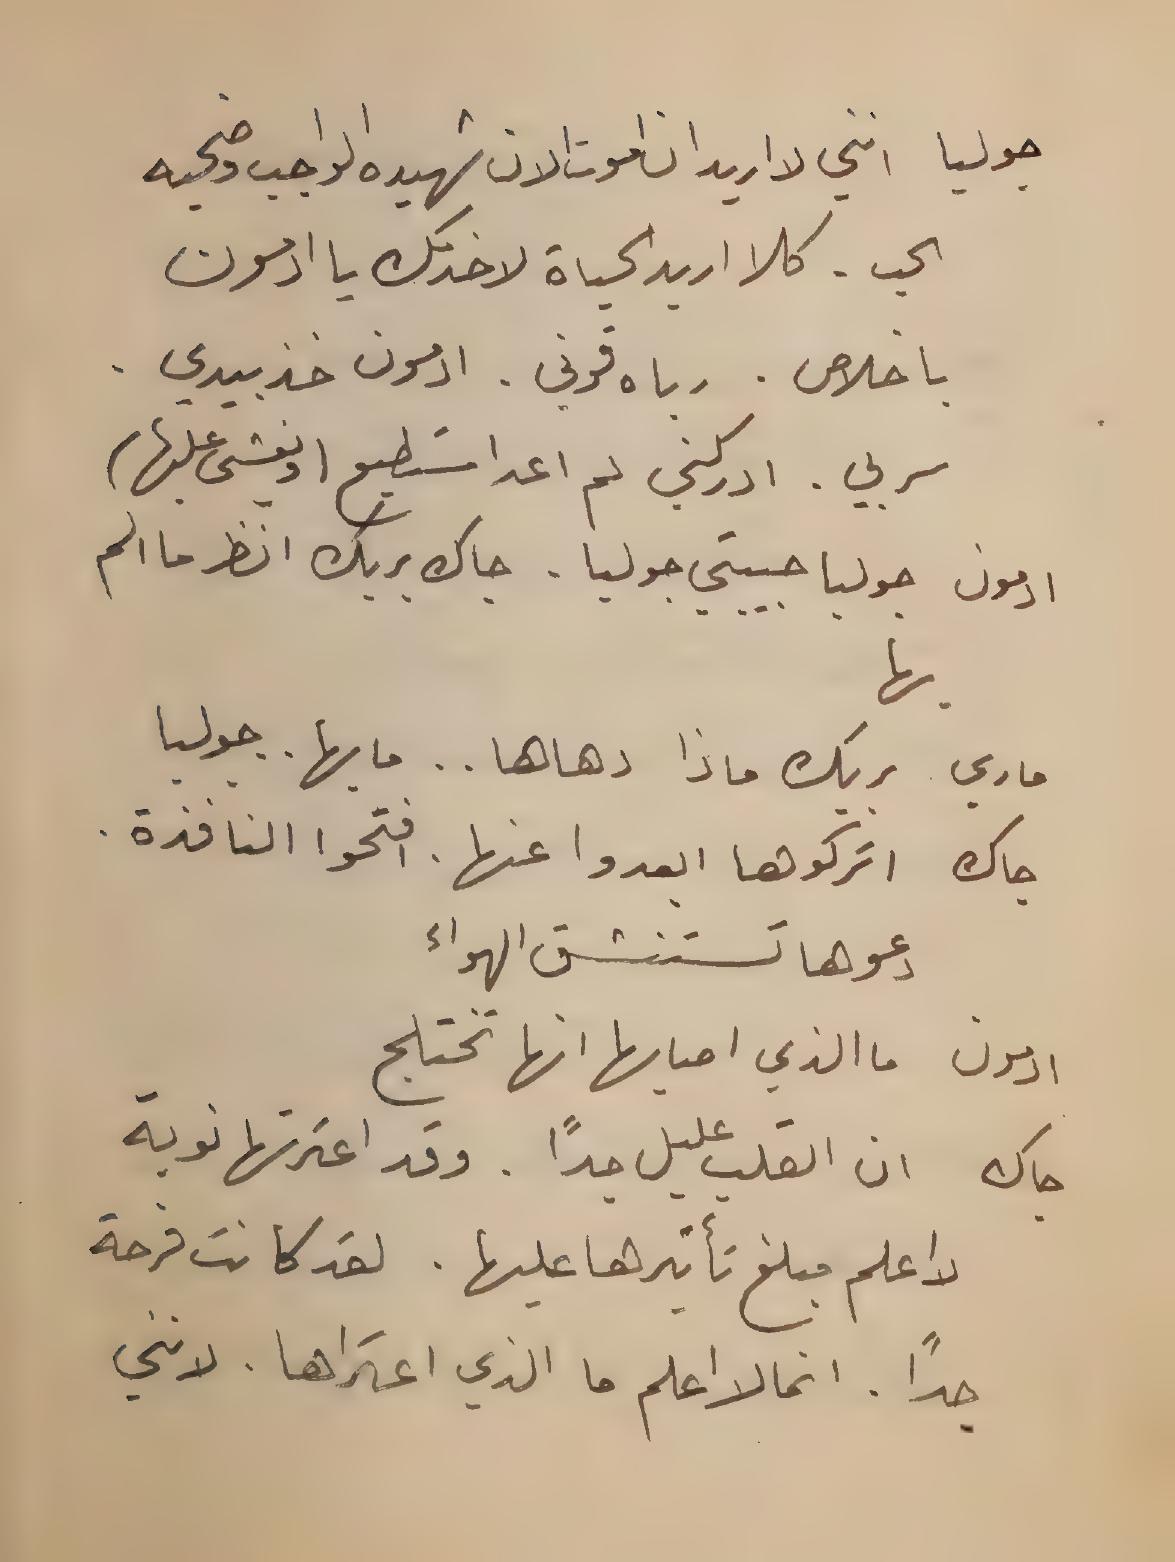 جوليا انني لا اريد ان اموت الان شهيده الواجب وضحيه
الحب . كلا اريد الحياة لاخدمك يا ادمون
باخلاص . رباه قوني . ادمون خذ بيدي .
سر بي . ادركني لم اعد استطيع ( ويغشى عليها )
ادمون جوليا حبيبتي جوليا . جاك بربك انظر ما الم
بها
ماري بربك ماذا دهاها . . ما بها . جوليا
جاك اتركوها ابعدوا عنها . افتحوا النافذة .
دعوها تستنشق الهواء
ادمون ما الذي اصابها انها تختلج
جاك ان القلب عليل جدًا . وقد اعترتها نوبة
لا اعلم مبلغ تأثيرها عليها . لقد كانت فرحة
جدًا . انما لا اعلم ما الذي اعتراها . لانني